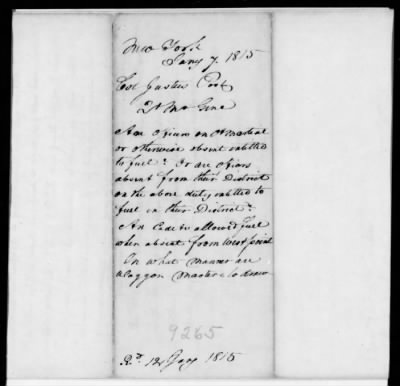 New York
Jany 7. 1815
Col Justus Post
Are officers on Ct Martial
or otherwise absent entitled
to fuel? Or are officers
absent from their District
on the above duty entitled to
fuel in their District?
An Cadets allowed fuel
when absent from West point
In what manner are
Waggon Masters to
9265
Rd. 12 Jany 1815